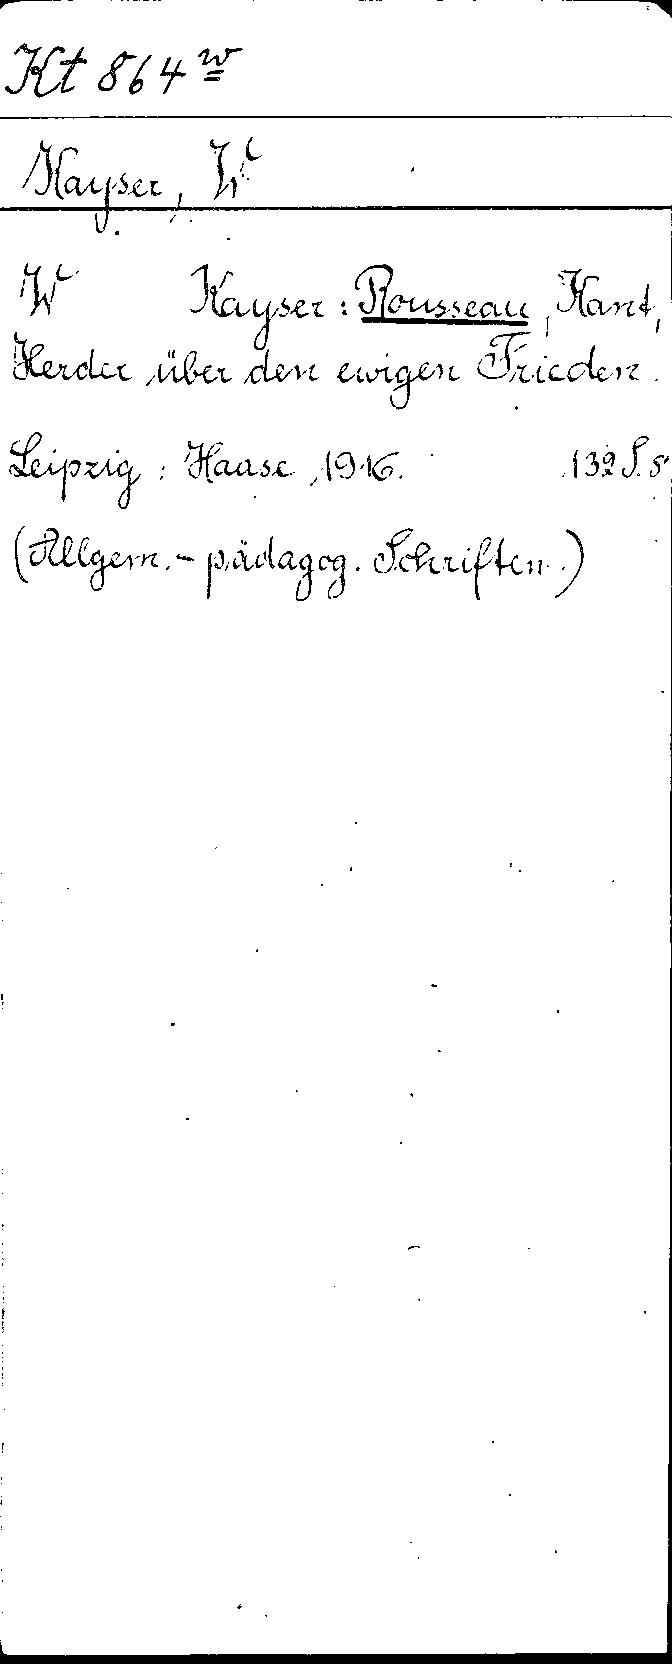 Kt 864 w
Kayser, W
W Kayser: Rousseau, Kant,
Herder über den ewigen Frieden.
Leipzig: Haase, 1916. 132 S. 8°
(Allgem.-pädagog. Schriften.)